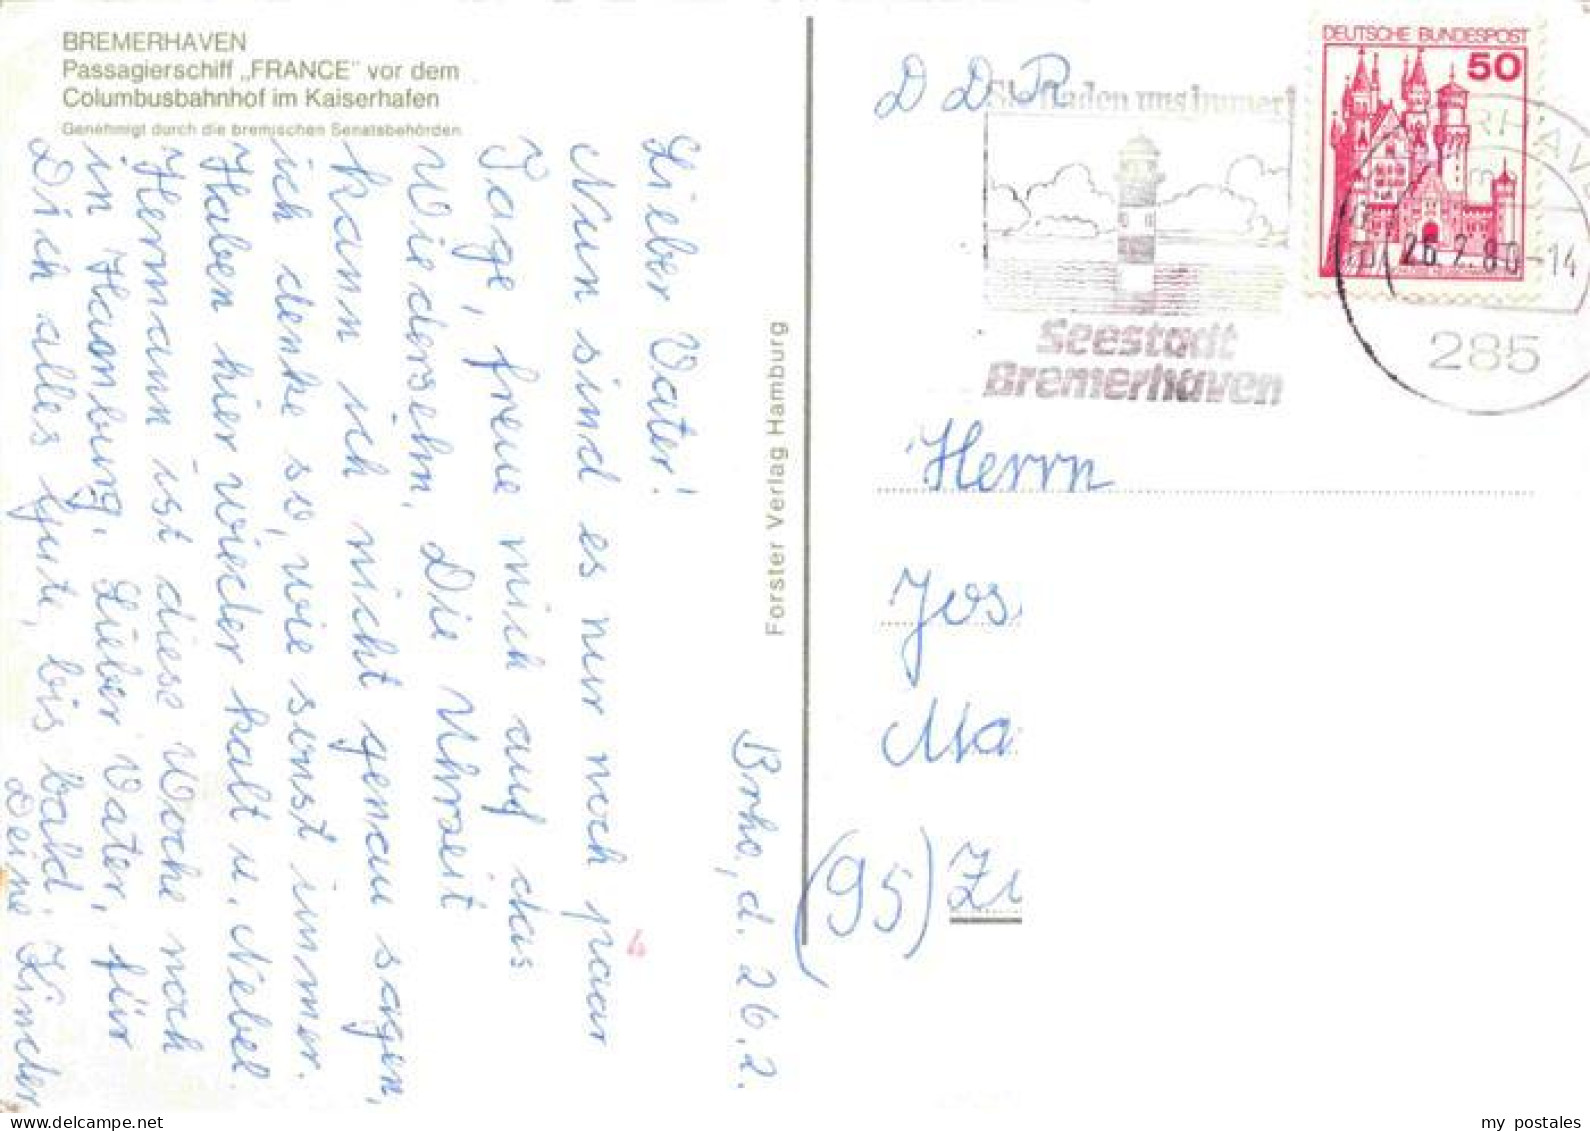 BREMERHAVEN
Passagierschiff „FRANCE" vor dem
Columbusbahnhof im Kaiserhafen
Genehmigt durch die bremischen Senatsbehörden.
Brhv, d. 26.2.
Lieber Vater!
Nun sind es nur noch paar
Tage, freue mich auf das
Wiedersehn. Die Uhrzeit
kann ich nicht genau sagen,
ich denke so, wie sonst immer.
Haben hier wieder kalt u. Nebel.
Hermann ist diese Woche noch
in Hamburg. Lieber Vater, für
Dich alles Gute, bis bald.
Deine Kinder
Forster Verlag Hamburg
DDR
uns immer!
Seestadt
Bremerhaven
DEUTSCHE BUNDESPOST
50
26.2.80-14
285
Herrn
Jos
Ma
(95) Zi
my postales